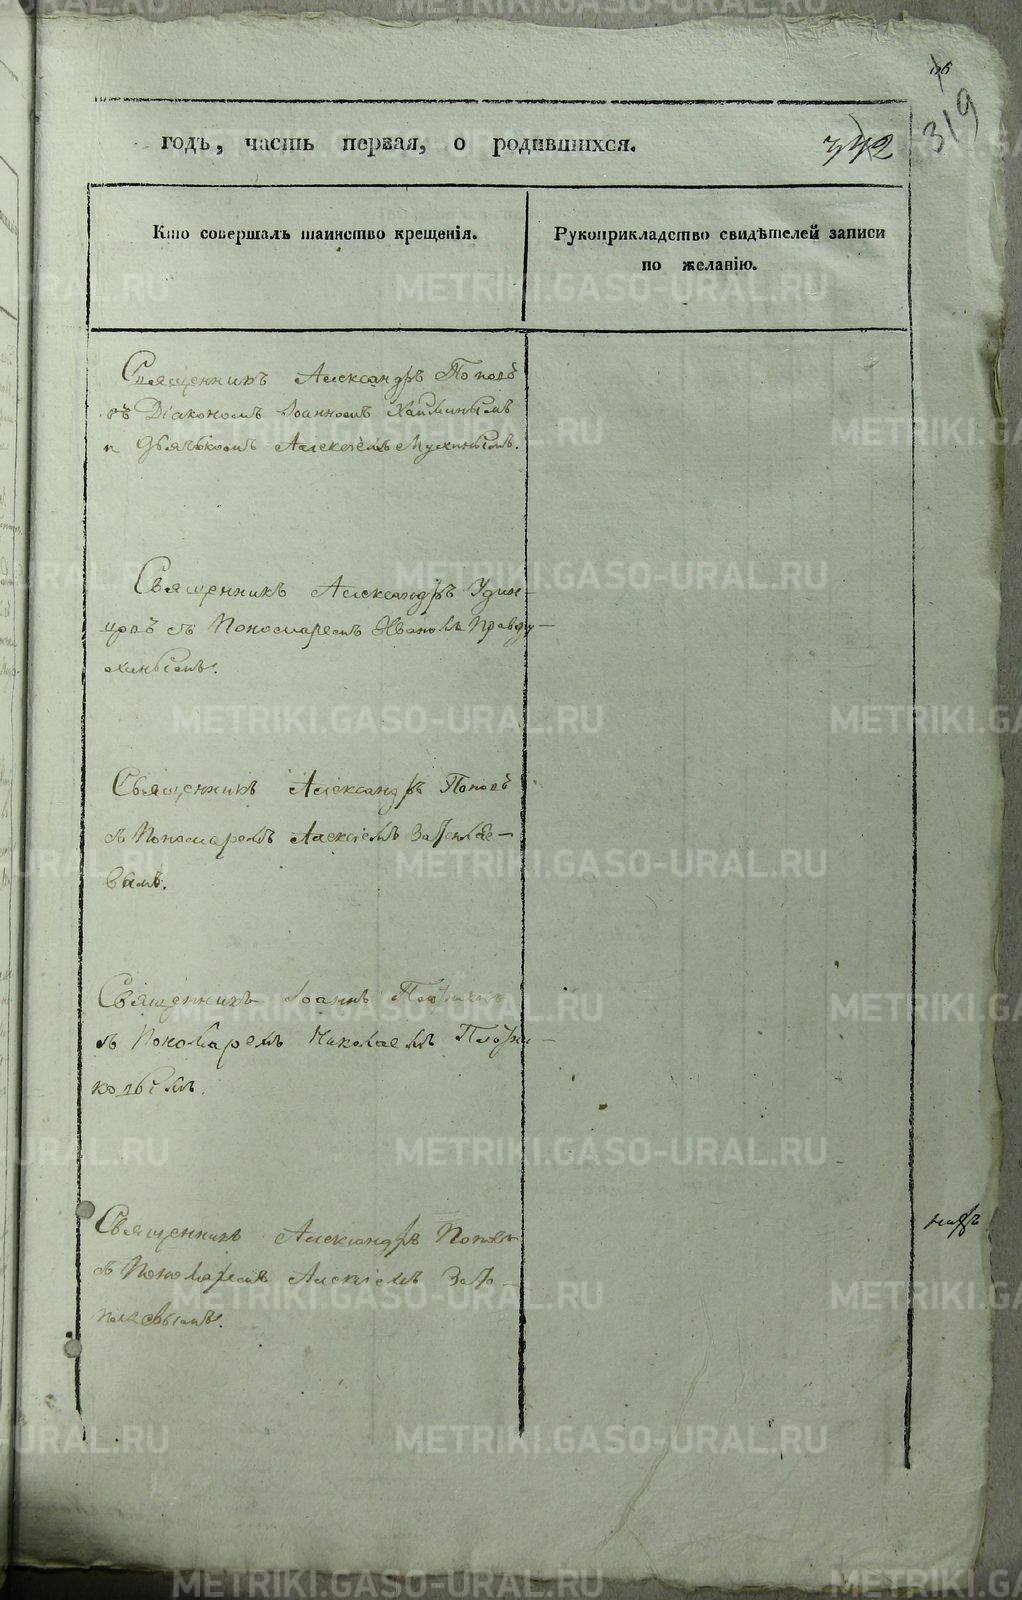 319
годъ, часть первая, о родившихся. 342
Кто совершалъ таинство крещенія.
Рукоприкладство свидѣтелей записи
по желанію.
Священникъ Александръ Поповъ
съ Діакономъ Іоанномъ
и Дьячкомъ Алексіемъ Мухинымъ.
Священникъ Александръ Удин-
цовъ съ Пономаремъ Иваномъ Правду-
хинымъ.
Священникъ Александръ Поповъ
съ Пономаремъ Алексіемъ
вымъ.
Священникъ Іоаннъ
съ Пономаремъ Николаемъ Плотни-
ковымъ.
Священникъ Александръ Поповъ
съ Пономаремъ Алексіемъ
METRIKI.GASO-URAL.RU